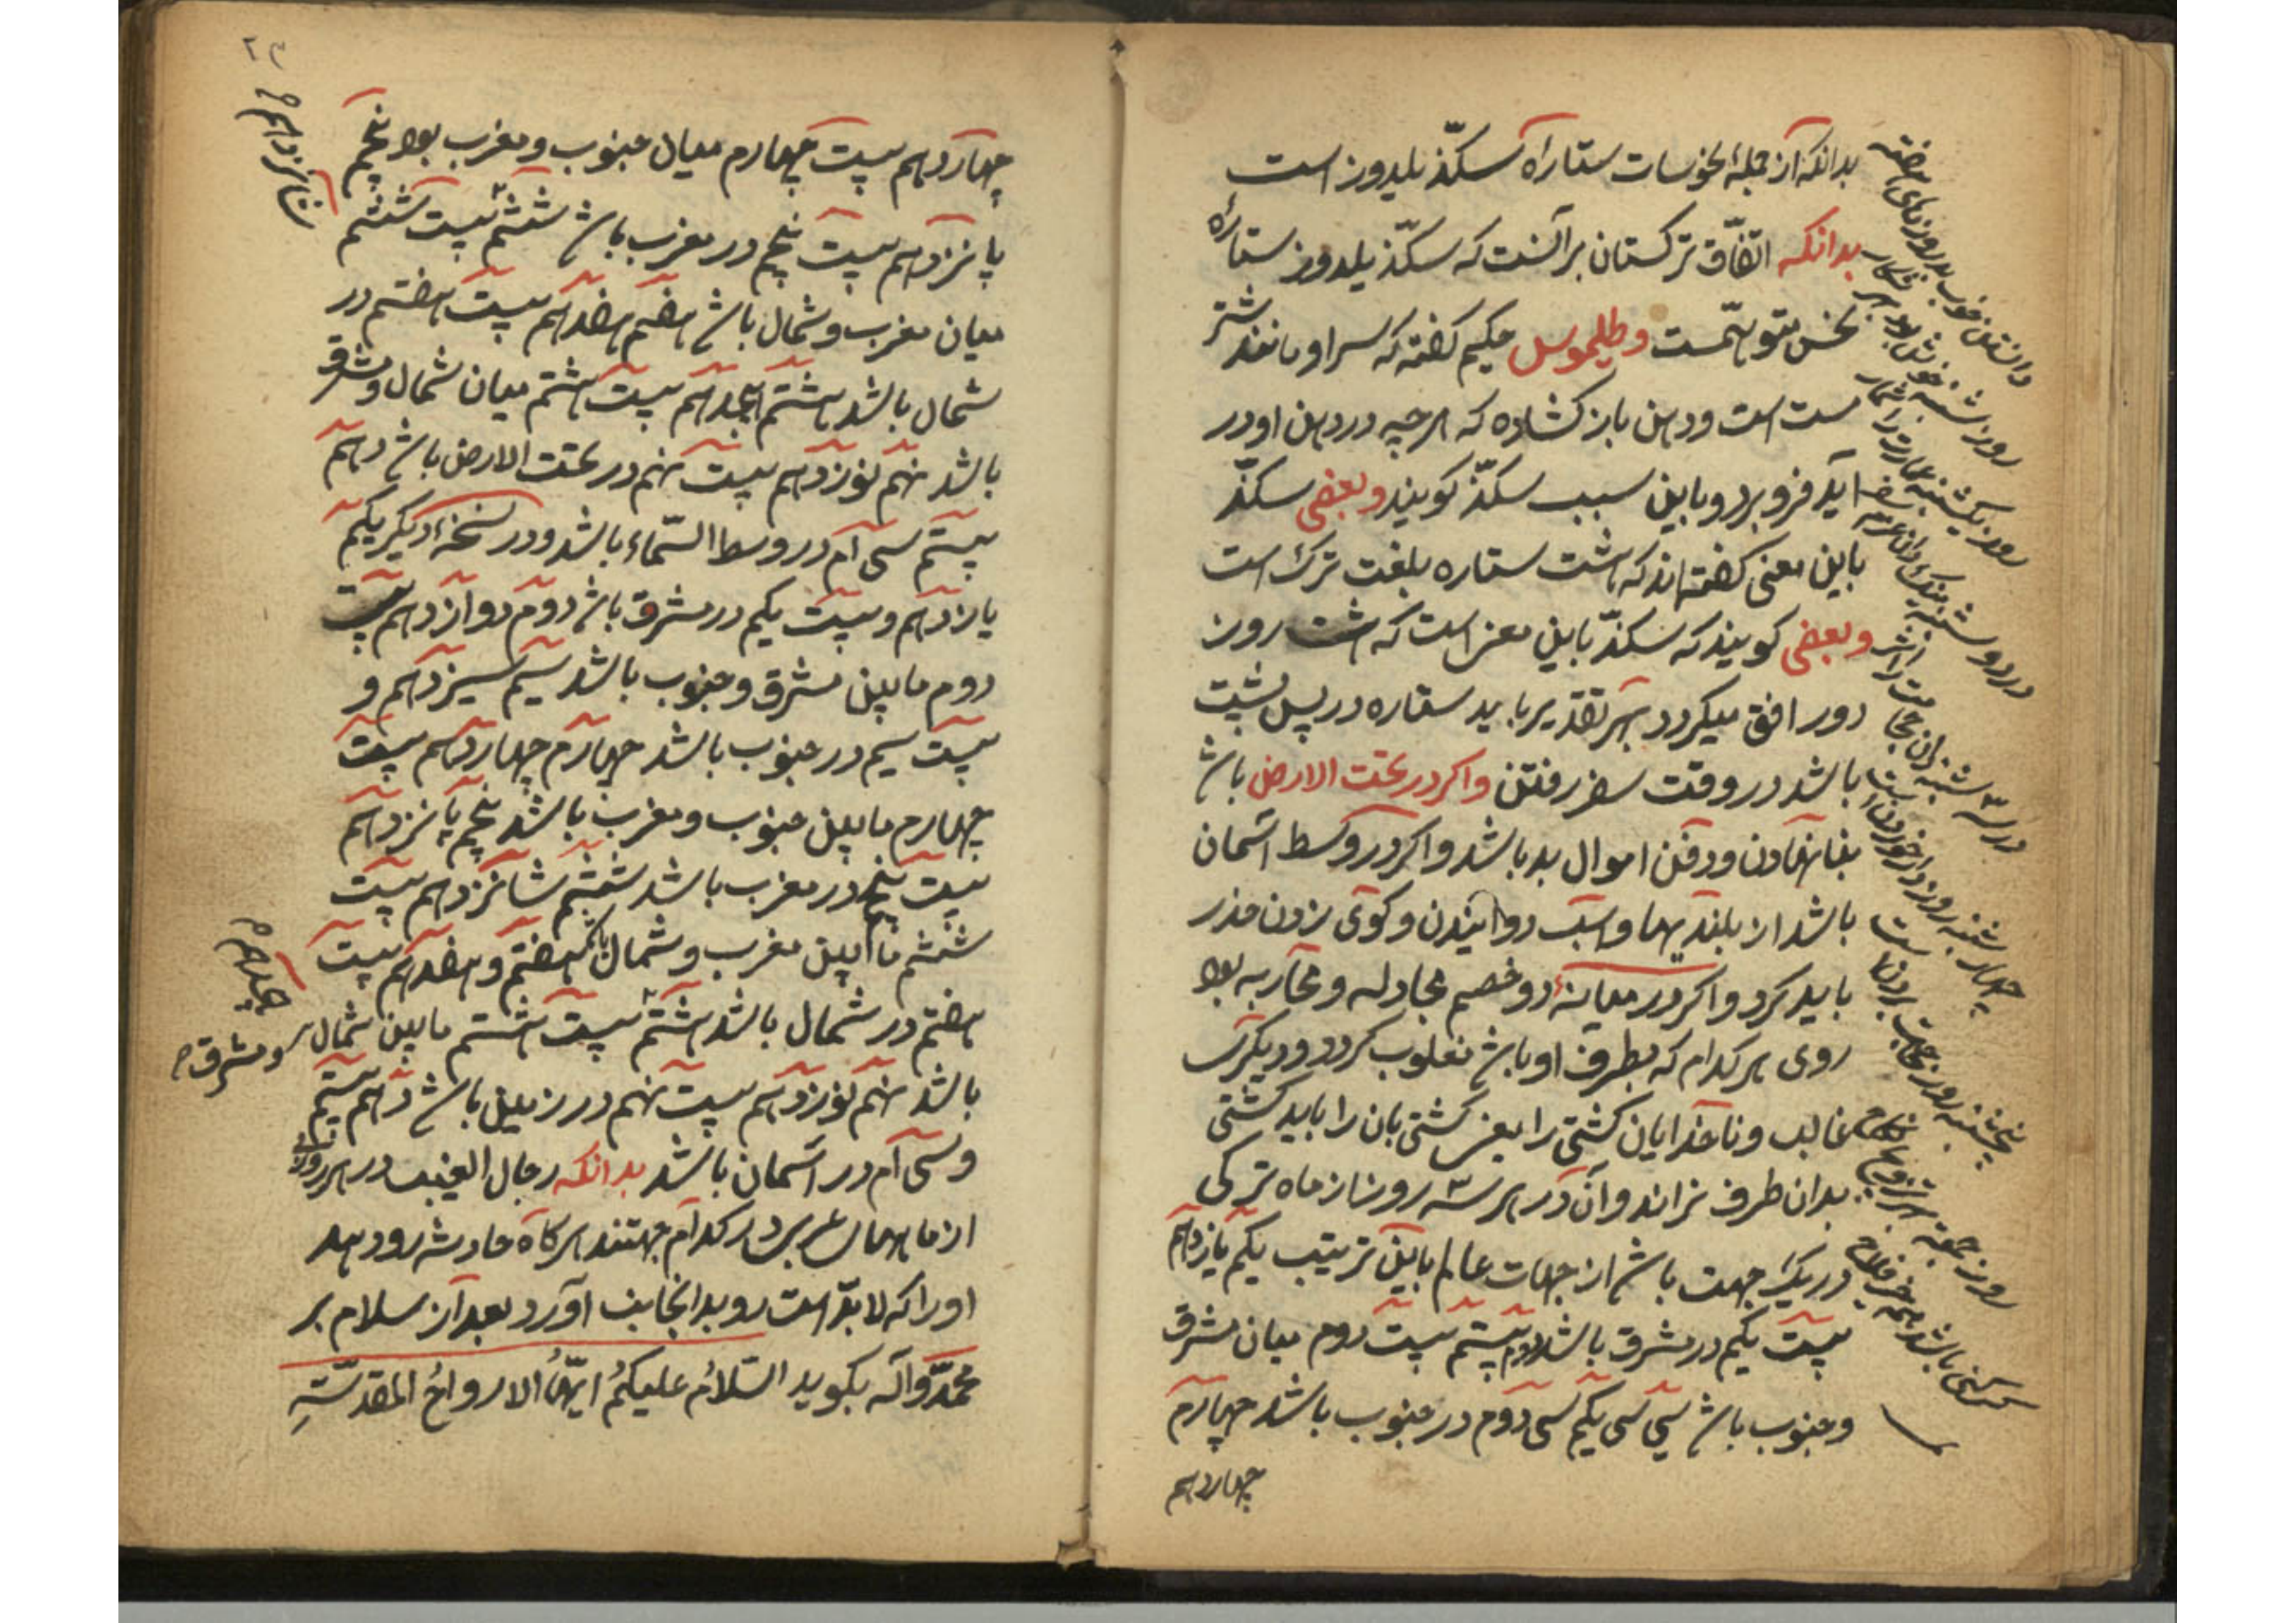 بدانکه از جملهٔ نحوسات ستاره سکّذ یلدوز است
بدانکه اتفّاق ترکستان بر آنست که سکّذ یلدوز ستارهٔ
نحس متوهّمست و طلیموس حکیم کفته که سر او مانند شتر
مست است و دهن باز کشاده که هر چه در دهن او در
آید فرو برد و باین سبب سکّذ کویند و بعضی سکّذ
باین معنی کفته‌اند که هشت ستاره بلغت ترک است
و بعضی کویند که سکذّ باین معنی است که هشت روز
دور افق میکردد بهر تقدیر باید ستاره در پس پشت
باشد در وقت سفر رفتن و اکر در تحت الارض باشد
بنا نهادن و دفن اموال بد باشد و اکر در وسط آسمان
باشد از بلندیها و اسب دوانیدن و کوی زدن حذر
باید کرد و اکر در میانهٔ دو خصم مجادله و محاربه بود
روی هر کدام که بطرف او باشد مغلوب کردد و دیکری
غالب و ناخدایان کشتی را یعنی کشتی بان را باید کشتی
بدان طرف نراند و آن در هر سه روز از ماه ترکی
در یک جهت باشد از جهات عالم باین ترتیب یکم یازدهم
بیست یکم در مشرق باشد دوم بیستم بیست دوم میان مشرق
و جنوب باشد سی سی یکم سی دوم در جنوب باشد چهارم
چهاردهم
دانستن خوب بد روزهای هفته
روز شنبه خوش بود بهر شکار
روز یکشنبه عمارت را شمار
در دوشنبه نیک دان عزم سفر
در سه شنبه دان حجامت را اثر
چهار شنبه روز دارو خوردن است
پنجشنبه روز حاجت بردن است
روز جمعه تزویج و نکاح
چهاردهم بیست چهارم میان جنوب و مغرب بود پنجم
پانزدهم بیست پنجم در مغرب باشد ششم بیست ششم
میان مغرب و شمال باشد هفتم هفدهم بیست هفتم در
شمال باشد هشتم هجدهم بیست هشتم میان شمال و مشرق
باشد نهم نوزدهم بیست نهم در تحت الارض باشد دهم
بیستم سی ام در وسط السّماء باشد و در نسخهٔ دیکر یکم
یازدهم و بیست یکم در مشرق باشد دوم دوازدهم بیست
دوم مابین مشرق و جنوب باشد سیم سیزدهم و
بیست سیم در جنوب باشد چهارم چهاردهم بیست
چهارم مابین جنوب و مغرب باشد پنجم پانزدهم
بیست پنجم در مغرب باشد ششم شانزدهم بیست
ششم مابین مغرب و شمال باشد هفتم و هفدهم بیست
هفتم در شمال باشد هشتم بیست هشتم مابین شمال و مشرق
باشد نهم نوزدهم بیست نهم در زمین باشد دهم بیستم
و سی ام در آسمان باشد بدانکه رجال الغیب در هر روزی
از ماههای عربی در کدام جهتند هرکاه حادثه رو دهد
او را که لابدّ است رو بدانجانب آورد بعد از سلام بر
محمّد و آله بکوید السّلامُ علیکمُ ایّهٔا الارواحُ المقدسّة
شانزدهم
هجدهم